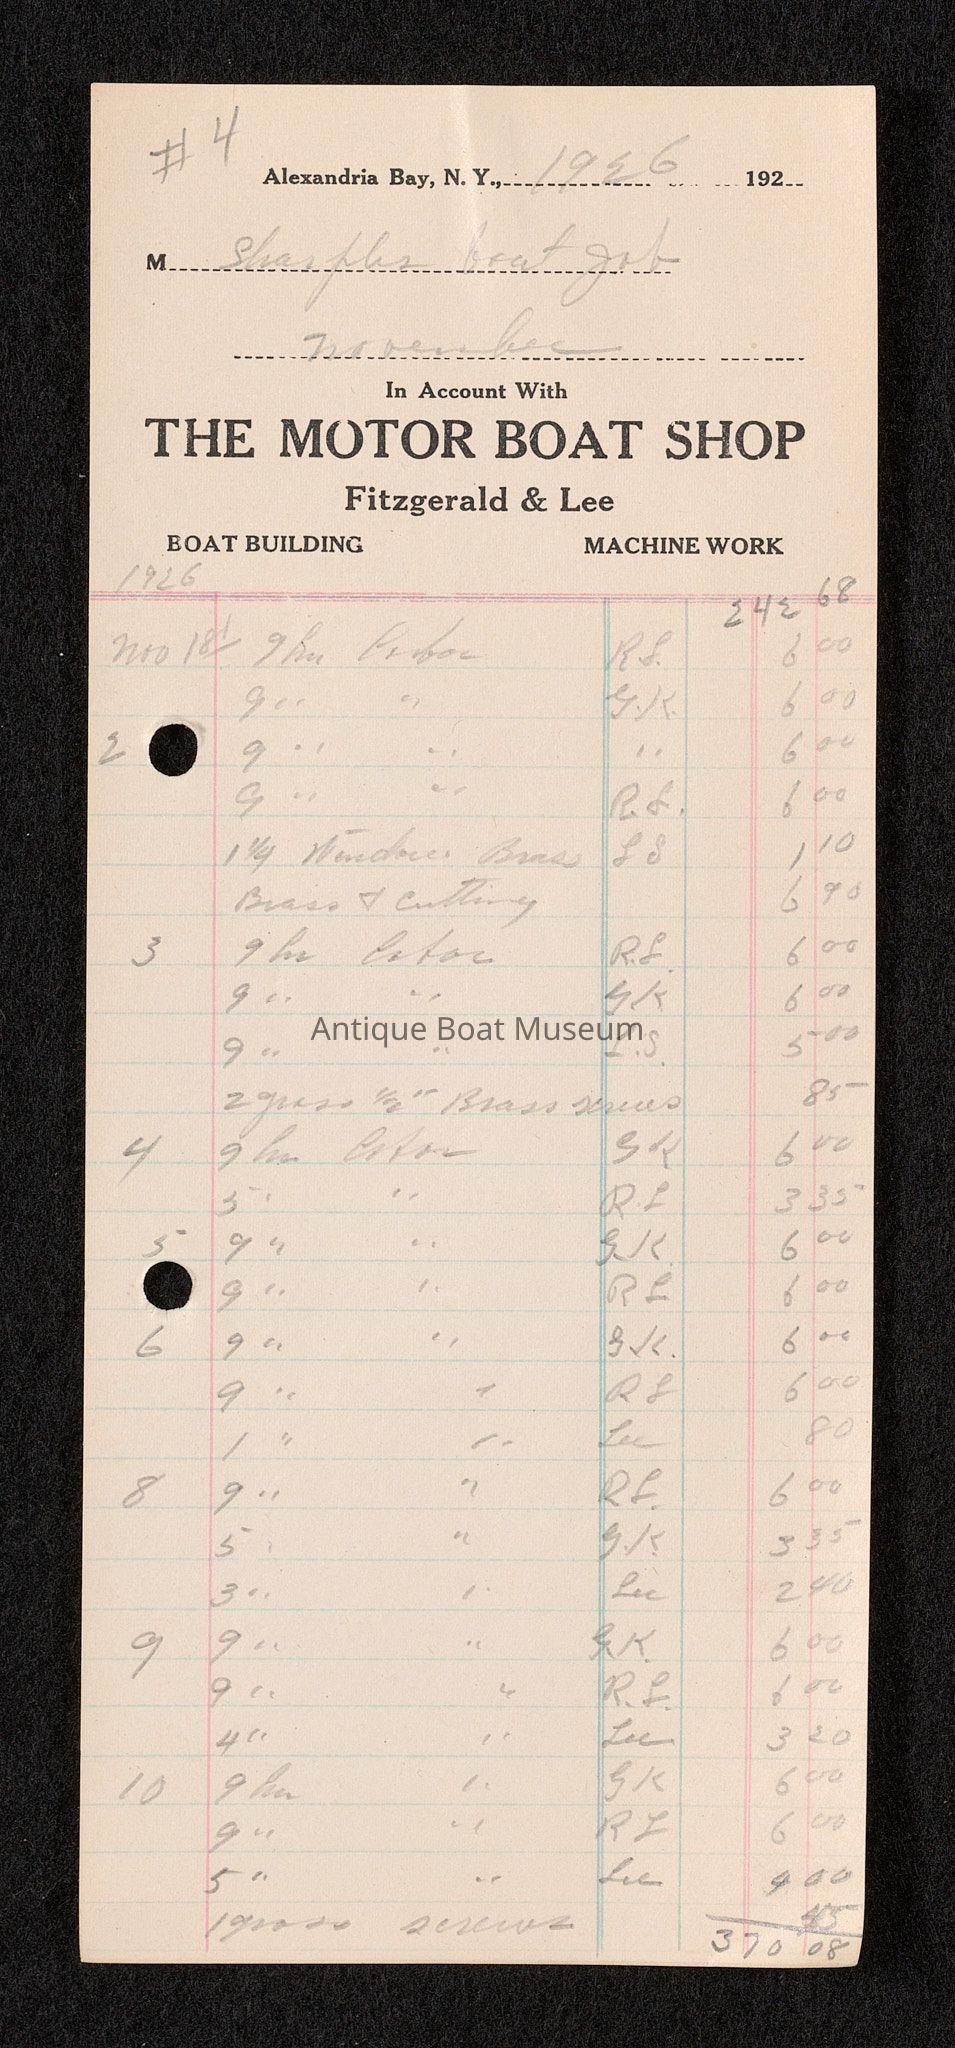 # 4
Alexandria Bay, N. Y., 1926 192
M Sharples boat Job
november
In Account With
THE MOTOR BOAT SHOP
Fitzgerald & Lee
BOAT BUILDING MACHINE WORK
1926
242 68
Nov 1st 9 hr Labor R L. 6 00
9 " " G.K. 6 00
2 9 " " " 6 00
9 " " R.L. 6 00
1 1/4 Brass L S 1 10
Brass & Cutting 6 90
3 9 hr Labor R.L. 6 00
9 " " G K 6 00
Antique Boat Museum
9 " " L.S. 5 00
2 gross 1/2" Brass screws 85
4 9 hr Labor G K 6 00
5 " " R L 3 35
5 9 " " G K 6 00
9 " " R L 6 00
6 9 " " G.K. 6 00
9 " " R L 6 00
1 " " Lee 80
8 9 " " R L. 6 00
5 " " G.K. 3 35
3 " " Lee 2 40
9 9 " " G.K. 6 00
9 " " R.L. 6 00
4 " " Lee 3 20
10 9 hr " G K 6 00
9 " " R L 6 00
5 " " Lee 4 00
1 gross screws 45
370 08